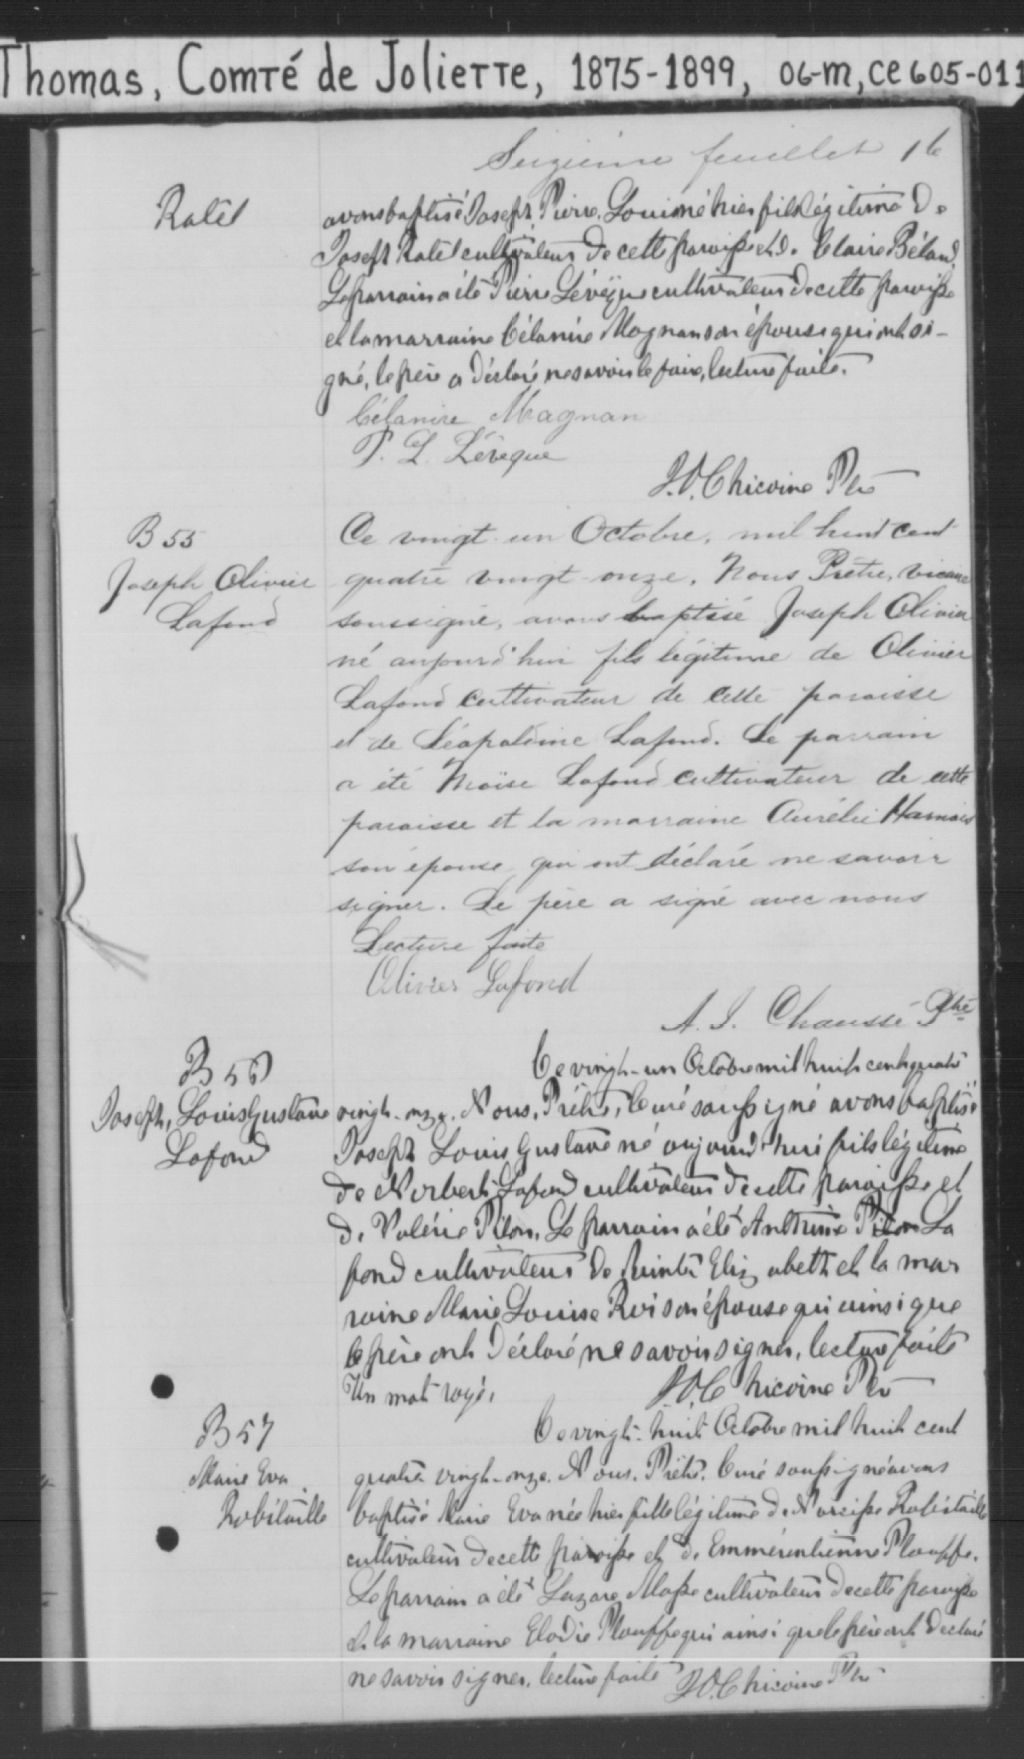 Thomas, Comté de Joliette, 1875-1899, 06-M, CE605-011
Seizième feuillet 16
Ratel
avons baptisé Joseph Pierre Louis né hier fils légitime de
Joseph Ratel cultivateur de cette paroisse et de Claire Béland.
Le parrain a été Pierre Lévêque cultivateur de cette paroisse
et la marraine Célanire Magnan son épouse qui ont si-
gné, le père a déclaré ne savoir le faire, lecture faite.
Célanire Magnan
P. L. Léveque
J.O. Chicoine Ptre
B 55
Joseph Olivier
Lafond
Ce vingt-un Octobre, mil huit cent
quatre vingt-onze, Nous Prêtre, vicaire
soussigné, avons baptisé Joseph Olivier
né aujourd'hui fils légitime de Olivier
Lafond cultivateur de cette paroisse
et de Léopoldine Lafond. Le parrain
a été Moïse Lafond cultivateur de cette
paroisse et la marraine Aurélie Harnois
son épouse qui ont déclaré ne savoir
signer. Le père a signé avec nous
Lecture faite
Olivier Lafond
A. I. Chaussé Ptre
B 56
Joseph, Louis Gustave
Lafond
Ce vingt-un Octobre mil huit cent quatre
vingt-onze, Nous, Prêtre, Curé soussigné avons baptisé
Joseph Louis Gustave né aujourd'hui fils légitime
de Norbert Lafond cultivateur de cette paroisse et
de Valérie Pilon. Le parrain a été Anthime Pilon La
fond cultivateur de Sainte Elizabeth et la mar
raine Marie Louise Roi son épouse qui ainsi que
le père ont déclaré ne savoir signer, lecture faite
Un mot rayé.
J.O. Chicoine Ptre
B 57
Marie Eva
Robitaille
Ce vingt-huit Octobre mil huit cent
quatre vingt-onze, Nous, Prêtre, Curé soussigné avons
baptisé Marie Eva née hier fille légitime de Narcisse Robitaille
cultivateur de cette paroisse et de Emmérentienne Plouffe.
Le parrain a été Lazare Masse cultivateur de cette paroisse
et la marraine Elodie Plouffe qui ainsi que le père ont déclaré
ne savoir signer, lecture faite J.O. Chicoine Ptre